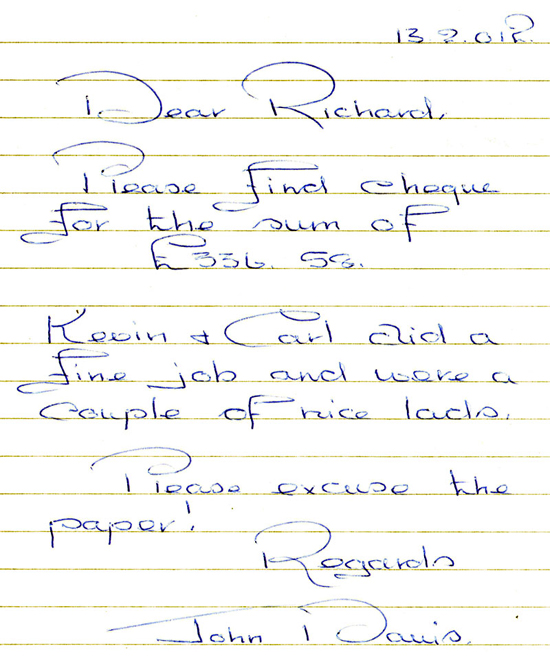 13.2.012.
Dear Richard,
Please find cheque
for the sum of
£336. 58.
Kevin & Carl did a
fine job and were a
couple of nice lads.
Please excuse the
paper!
Regards
John Davis.